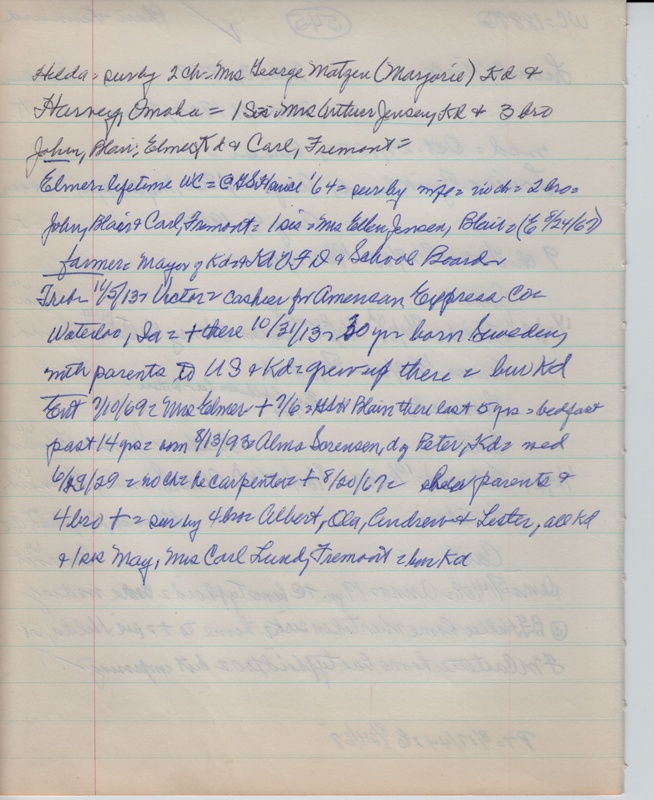 Hilda = sur by 2 ch = Mrs George Matzen (Marjorie) Kd &
Harvey, Omaha = 1 Sis Mrs Arthur Jensen, Kd & 3 bro
John, Blair, Elmer, Kd & Carl, Fremont =
Elmer = lifetime WC = @ '64 = sur by = no ch = 2 bro =
John, Blair & Carl, Fremont = 1 sis = Mrs Ellen Jensen, Blair = (E 8/24/67)
farmer = Mayor of Kd = & Kd VFD & School Board =
Trib = 11/5/13 = Victor = cashier for American Express Co =
Waterloo, Ia = + there 10/31/13 = 30 yr born Sweden,
with parents to US & Kd = grew up there = bur Kd
Ent 7/10/69 = Mrs Elmer + 7/6 = Blair there last 5 yrs = bedfast
past 14 yrs = born 8/13/93 = Alma Sorensen, dg Peter, Kd = wed
6/29 = no ch = he carpenter = + 8/20/67 = parents &
4 bro + = sur by 4 bro = Albert, Ola, Andrew & Lester, all Kd
& 1 sis May, Mrs Carl Lund, Fremont = bur Kd